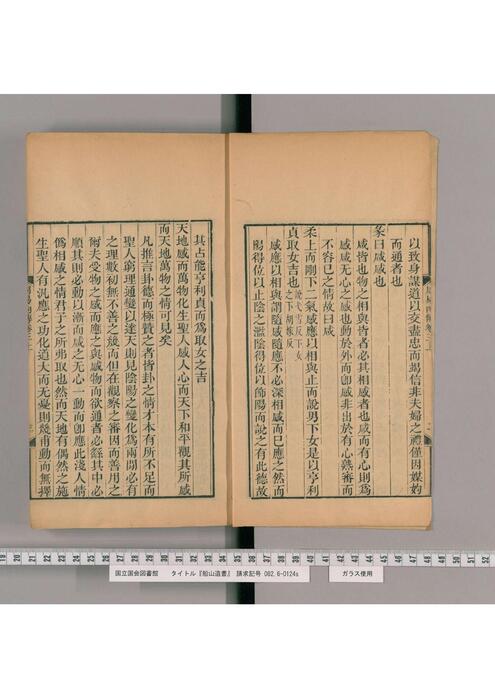 以致身謀道以交盡忠而竭信非夫婦之禮僅因媒妁
而通者也
彖曰咸感也
咸皆也物之相與皆者必其相感者也咸而有心則爲
感咸无心之感也動於外而卽感非出於有心熟審而
不容已之情故曰咸
柔上而剛下二氣感應以相與止而說男下女是以亨利
貞取女吉也
說弋雪反下女
之下胡嫁反
咸應以相與謂隨感隨應不必深相感而已應之然而
陽得位以止陰之濫陰得位以飾陽而說之有此德故
其占能亨利貞而爲取女之吉
天地感而萬物化生聖人感人心而天下和平觀其所感
而天地萬物之情可見矣
凡推言卦德而極贊之者皆卦之情才本有所不足而
聖人窮理通變以達天則見陰陽之變化爲兩閒必有
之理數初無不善之幾而但在觀察之審因而善用之
爾夫受物之感而應之與感物而欲通者必餘其中必
順其則必動以漸而咸之无心一動而卽應此淺人情
僞相感之情君子之所弗取也然而天地有偶然之施
生聖人有汎應之功化道大而无憂則幾甫動而無擇
19 20 21 22 23 24 25 26 27 28 29 30 31 32 33 34 35 36 37 38 39 40 41 42 43 44 45 46 47 48 49 50 51 52
国立国会図書館 タイトル『船山遺書』 請求記号 082.6-0124s ガラス使用